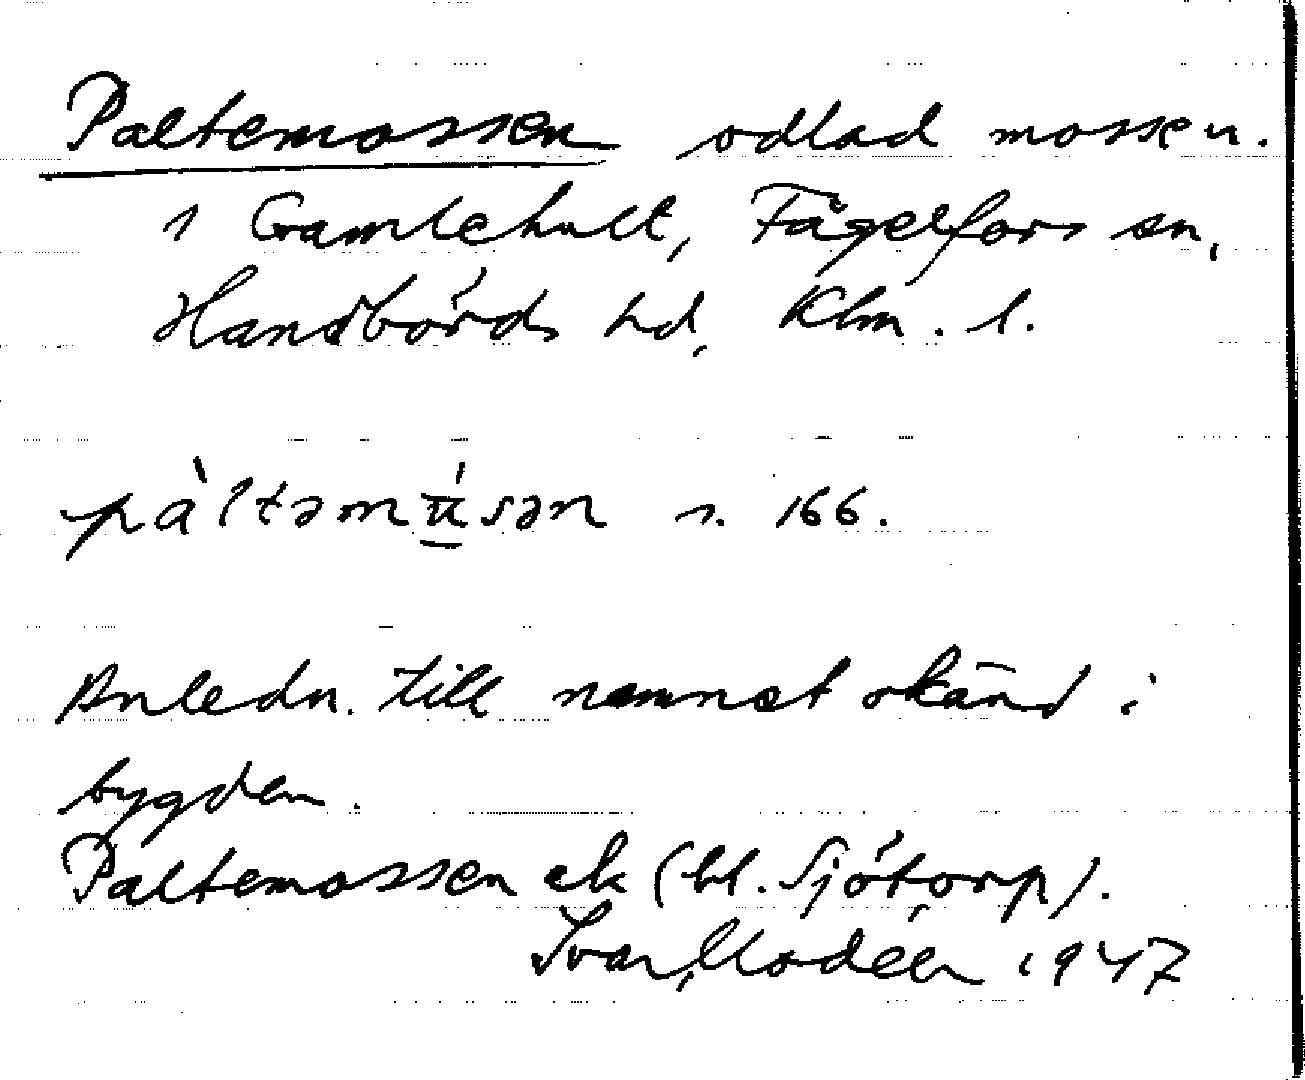 Paltemossen odlad mossen.
i Gamlehult, Fågelfors sn,
Handbörds hd, Klm. l.
pàltəmúsən s. 166.
Anledn. till namnet okänd i
bygden.
Paltemossen ek (bl. Sjötorp).
Ivar Modéer 1947